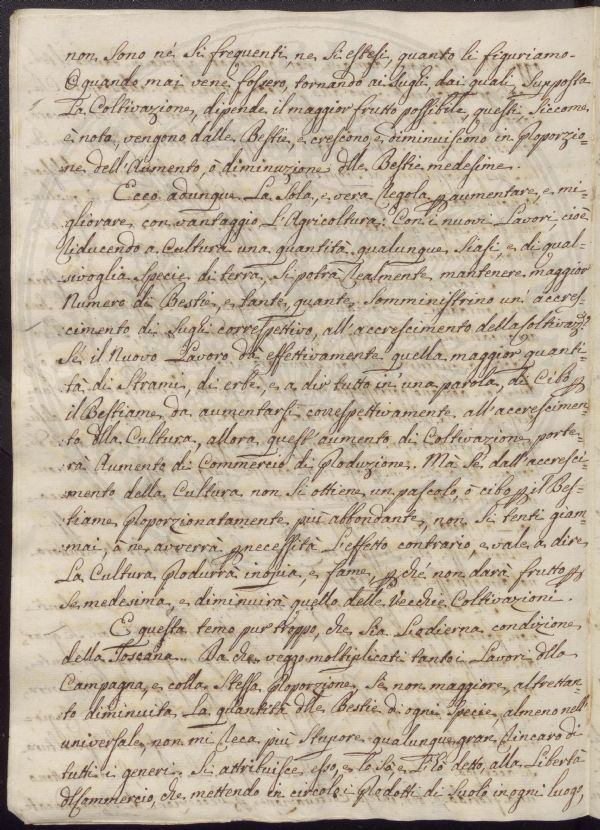 non sono nè si frequenti, ne si estesi, quanto li figuriamo.
O quando mai vene fossero, tornando ai sughi, dai quali, supposta
La Coltivazione, dipende il maggior frutto possibile, questi, siccome
è noto, vengono dalle Bestie, e crescono, e diminuiscono in Proporzio-
ne dell'Aumento, ò diminuzione dlle Bestie medesime.
Ecco adunque La Sola, e vera Regola p aumentare, e mi-
gliorare con vantaggio L'Agricoltura: Con i nuovi Lavori, cioè
Riducendo a Cultura una quantità qualunque siasi, e di qual-
:sivoglia specie di terra. Si potrà Realmente mantenere maggior
Numero di Bestie, e tante, quante somministrino un' accres-
:cimento di sughi correspettivo, all'accrescimento della Coltivaz.e?
Sé il Nuovo Lavoro dà effettivamente quella maggior quanti-
tà di Strami, di erbe, e a dir tutto in una parola, di Cibo p
il Bestiame da aumentarsi correspettivamente all'accrescimen-
:to dlla Cultura, allora quest'aumento di Coltivazione, porte-
:rà Aumento di Commercio, di Produzione. Mà Sè dall'accresci-
mento della Cultura non si ottiene un pascolo, ò cibo p il Bes-
tiame Proporzionatamente più abbondante, non si tenti giam-
mai, ò ne avverrà p necessità L'effetto contrario, e vale a dire
La Cultura Produrrà inopia, e fame, p ché non darà frutto p
se medesima, e diminuirà quello delle Vecchie Coltivazioni.
E questa temo pur troppo, che sia L'odierna condizione
della Toscana. Da che veggo moltiplicati tanto i Lavori dlla
Campagna, e colla Stessa Proporzione, se non maggiore, altrettan-
to diminuita La quantità dlle Bestie di ogni specie, almeno nell'
universale, non mi Reca più Stupore qualunque gran Rincaro di
tutti i generi. Si attribuisce esso, e lo sò, e L'hò detto, alla Libertà
dl Commercio, che mettendo in circolo i Prodotti di Suolo in ogni luogo,